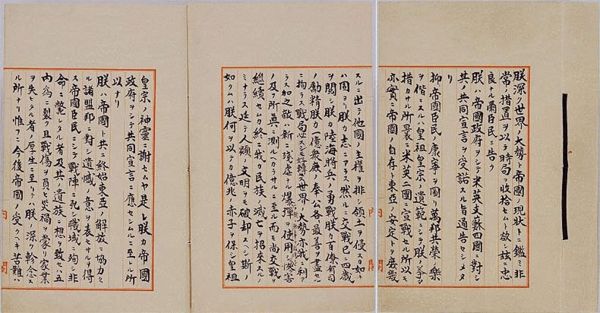 朕深ク世界ノ大勢ト帝國ノ現狀トニ鑑ミ非
常ノ措置ヲ以テ時局ヲ收拾セムト欲シ茲ニ忠
良ナル爾臣民ニ告ク
朕ハ帝國政府ヲシテ米英支蘇四國ニ對シ
其ノ共同宣言ヲ受諾スル旨通告セシメタリ
抑々帝國臣民ノ康寧ヲ圖リ萬邦共榮ノ樂
ヲ偕ニスルハ皇祖皇宗ノ遺範ニシテ朕ノ拳々
措カサル所曩ニ米英二國ニ宣戰セル所以モ
亦實ニ帝國ノ自存ト東亞ノ安定トヲ庶幾
スルニ出テ他國ノ主權ヲ排シ領土ヲ侵スカ如
キハ固ヨリ朕カ志ニアラス然ルニ交戰已ニ四歳
ヲ閲シ朕カ陸海將兵ノ勇戰朕カ百僚有司
ノ勵精朕カ一億衆庶ノ奉公各々最善ヲ盡セル
ニ拘ラス戰局必スシモ好轉セス世界ノ大勢亦我ニ利ア
ラス加之敵ハ新ニ殘虐ナル爆彈ヲ使用シテ
ノ及フ所眞ニ測ルヘカラサルニ至ル而モ尚交戰ヲ
繼續セムカ終ニ我カ民族ノ滅亡ヲ招來スルノ
ミナラス延テ人類ノ文明ヲモ破却スヘシ斯ノ
如クムハ朕何ヲ以テカ億兆ノ赤子ヲ保シ皇祖
皇宗ノ神靈ニ謝セムヤ是レ朕カ帝國
政府ヲシテ共同宣言ニ應セシムルニ至レル所
以ナリ
朕ハ帝國ト共ニ終始東亞ノ解放ニ協力セ
ル諸盟邦ニ對シ遺憾ノ意ヲ表セサルヲ得
ス帝國臣民ニシテ戰陣ニ死シ職域ニ殉シ非
命ニ斃レタル者及其ノ遺族ニ想ヲ致セハ五
内爲ニ裂ク且戰傷ヲ負ヒ災禍ヲ蒙リ家業
ヲ失ヒタル者ノ厚生ニ至リテハ朕ノ深ク軫念ス
ル所ナリ惟フニ今後帝國ノ受クヘキ苦難